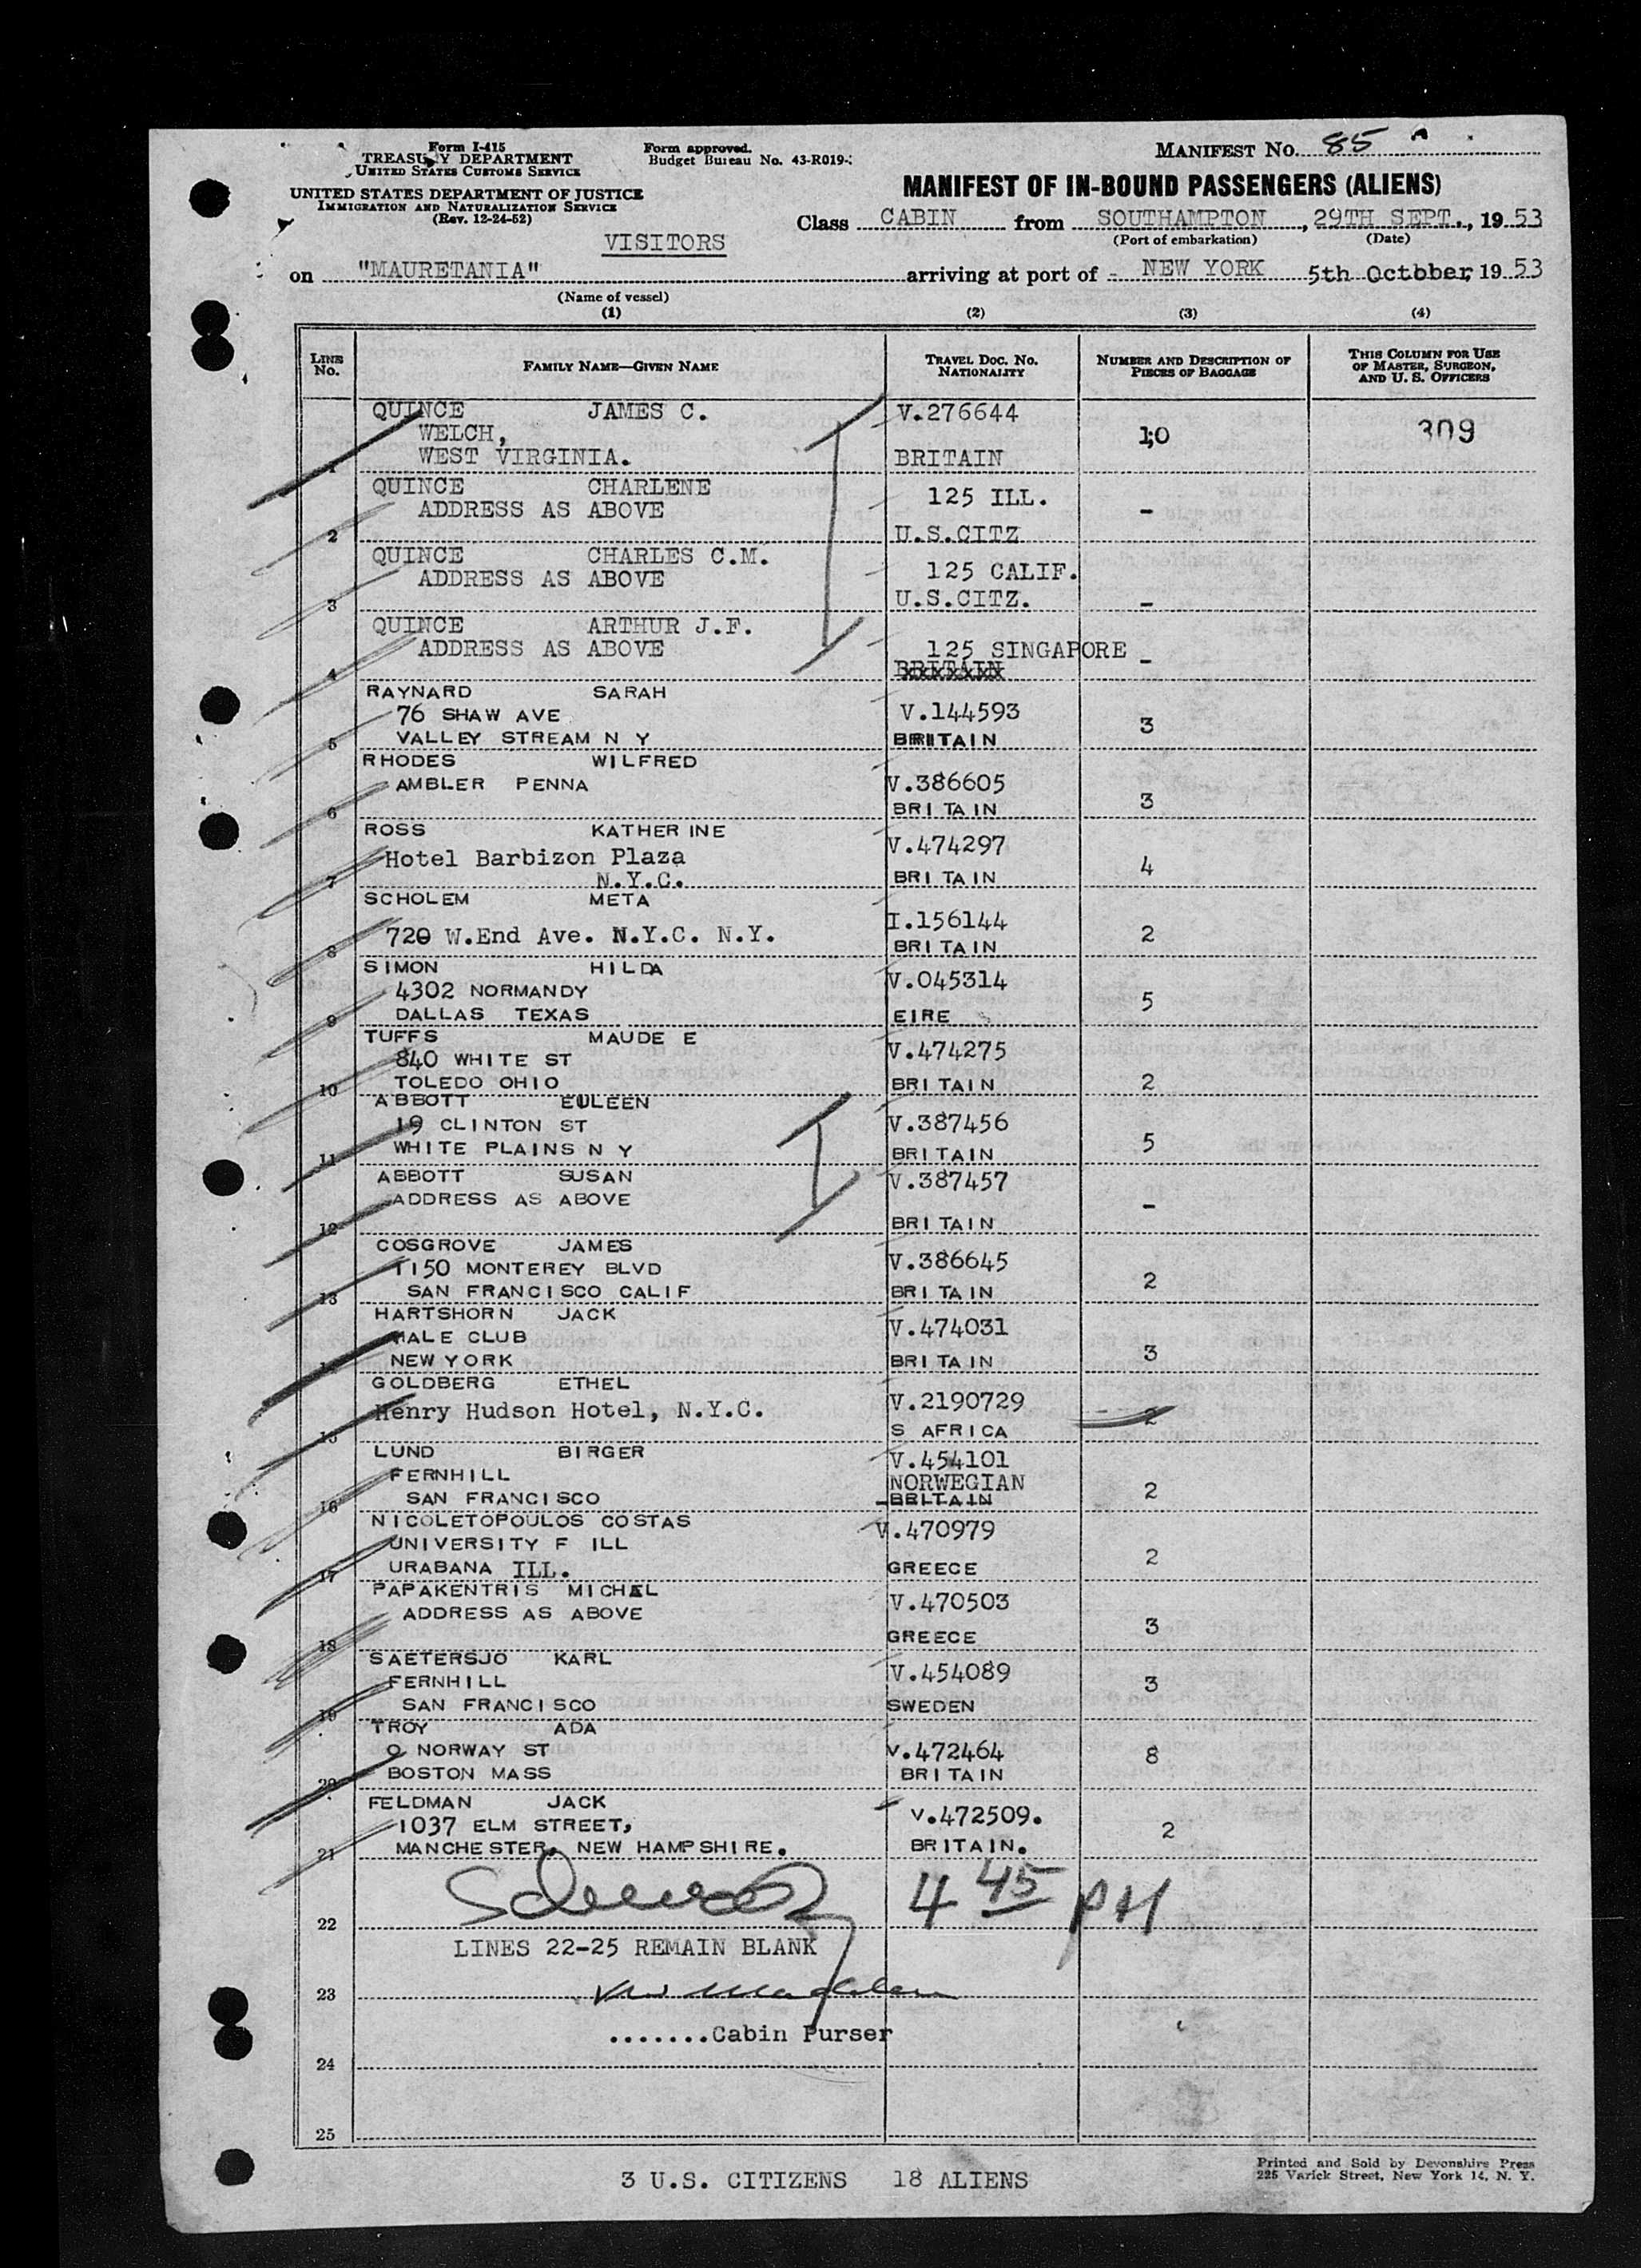 Form I-415
TREASURY DEPARTMENT
UNITED STATES CUSTOMS SERVICE
UNITED STATES DEPARTMENT OF JUSTICE
IMMIGRATION AND NATURALIZATION SERVICE
(Rev. 12-24-52)
Form approved.
Budget Bureau No. 43-R019-
MANIFEST NO. 85
MANIFEST OF IN-BOUND PASSENGERS (ALIENS)
Class CABIN from SOUTHAMPTON, 29TH SEPT., 1953
(Port of embarkation) (Date)
VISITORS
on "MAURETANIA" arriving at port of NEW YORK 5th Octbber, 1953
(Name of vessel)
(1) (2) (3) (4)
LINE NO. FAMILY NAME—GIVEN NAME TRAVEL DOC. NO. NATIONALITY NUMBER AND DESCRIPTION OF PIECES OF BAGGAGE THIS COLUMN FOR USE OF MASTER, SURGEON, AND U. S. OFFICERS
QUINCE JAMES C. V.276644
WELCH, 10 309
1 WEST VIRGINIA. BRITAIN
QUINCE CHARLENE 125 ILL.
ADDRESS AS ABOVE -
2 U.S.CITZ
QUINCE CHARLES C.M. 125 CALIF.
ADDRESS AS ABOVE
3 U.S.CITZ. -
QUINCE ARTHUR J.F.
ADDRESS AS ABOVE 125 SINGAPORE -
4 BRITAIN
RAYNARD SARAH
76 SHAW AVE V.144593 3
5 VALLEY STREAM N Y BRITAIN
RHODES WILFRED
AMBLER PENNA V.386605
6 BRITAIN 3
ROSS KATHERINE V.474297
Hotel Barbizon Plaza
7 N.Y.C. BRITAIN 4
SCHOLEM META I.156144
8 720 W.End Ave. N.Y.C. N.Y. BRITAIN 2
SIMON HILDA V.045314
4302 NORMANDY 5
9 DALLAS TEXAS EIRE
TUFFS MAUDE E V.474275
840 WHITE ST
10 TOLEDO OHIO BRITAIN 2
ABBOTT EULEEN V.387456
19 CLINTON ST
11 WHITE PLAINS N Y BRITAIN 5
ABBOTT SUSAN V.387457
ADDRESS AS ABOVE -
12 BRITAIN
COSGROVE JAMES V.386645
1150 MONTEREY BLVD 2
13 SAN FRANCISCO CALIF BRITAIN
HARTSHORN JACK V.474031
YALE CLUB
NEW YORK BRITAIN 3
GOLDBERG ETHEL V.2190729
Henry Hudson Hotel, N.Y.C. 2
15 S AFRICA
LUND BIRGER V.454101
FERNHILL NORWEGIAN
16 SAN FRANCISCO BRITAIN 2
NICOLETOPOULOS COSTAS V.470979
UNIVERSITY F ILL
17 URABANA ILL. GREECE 2
PAPAKENTRIS MICHAEL V.470503
ADDRESS AS ABOVE
18 GREECE 3
SAETERSJO KARL V.454089
FERNHILL 3
19 SAN FRANCISCO SWEDEN
TROY ADA
9 NORWAY ST V.472464 8
20 BOSTON MASS BRITAIN
FELDMAN JACK V.472509.
1037 ELM STREET, 2
21 MANCHESTER, NEW HAMPSHIRE. BRITAIN.
4 45 PM
22
LINES 22-25 REMAIN BLANK
23
.......Cabin Purser
24
25
3 U.S. CITIZENS 18 ALIENS
Printed and Sold by Devonshire Press
225 Varick Street, New York 14, N. Y.